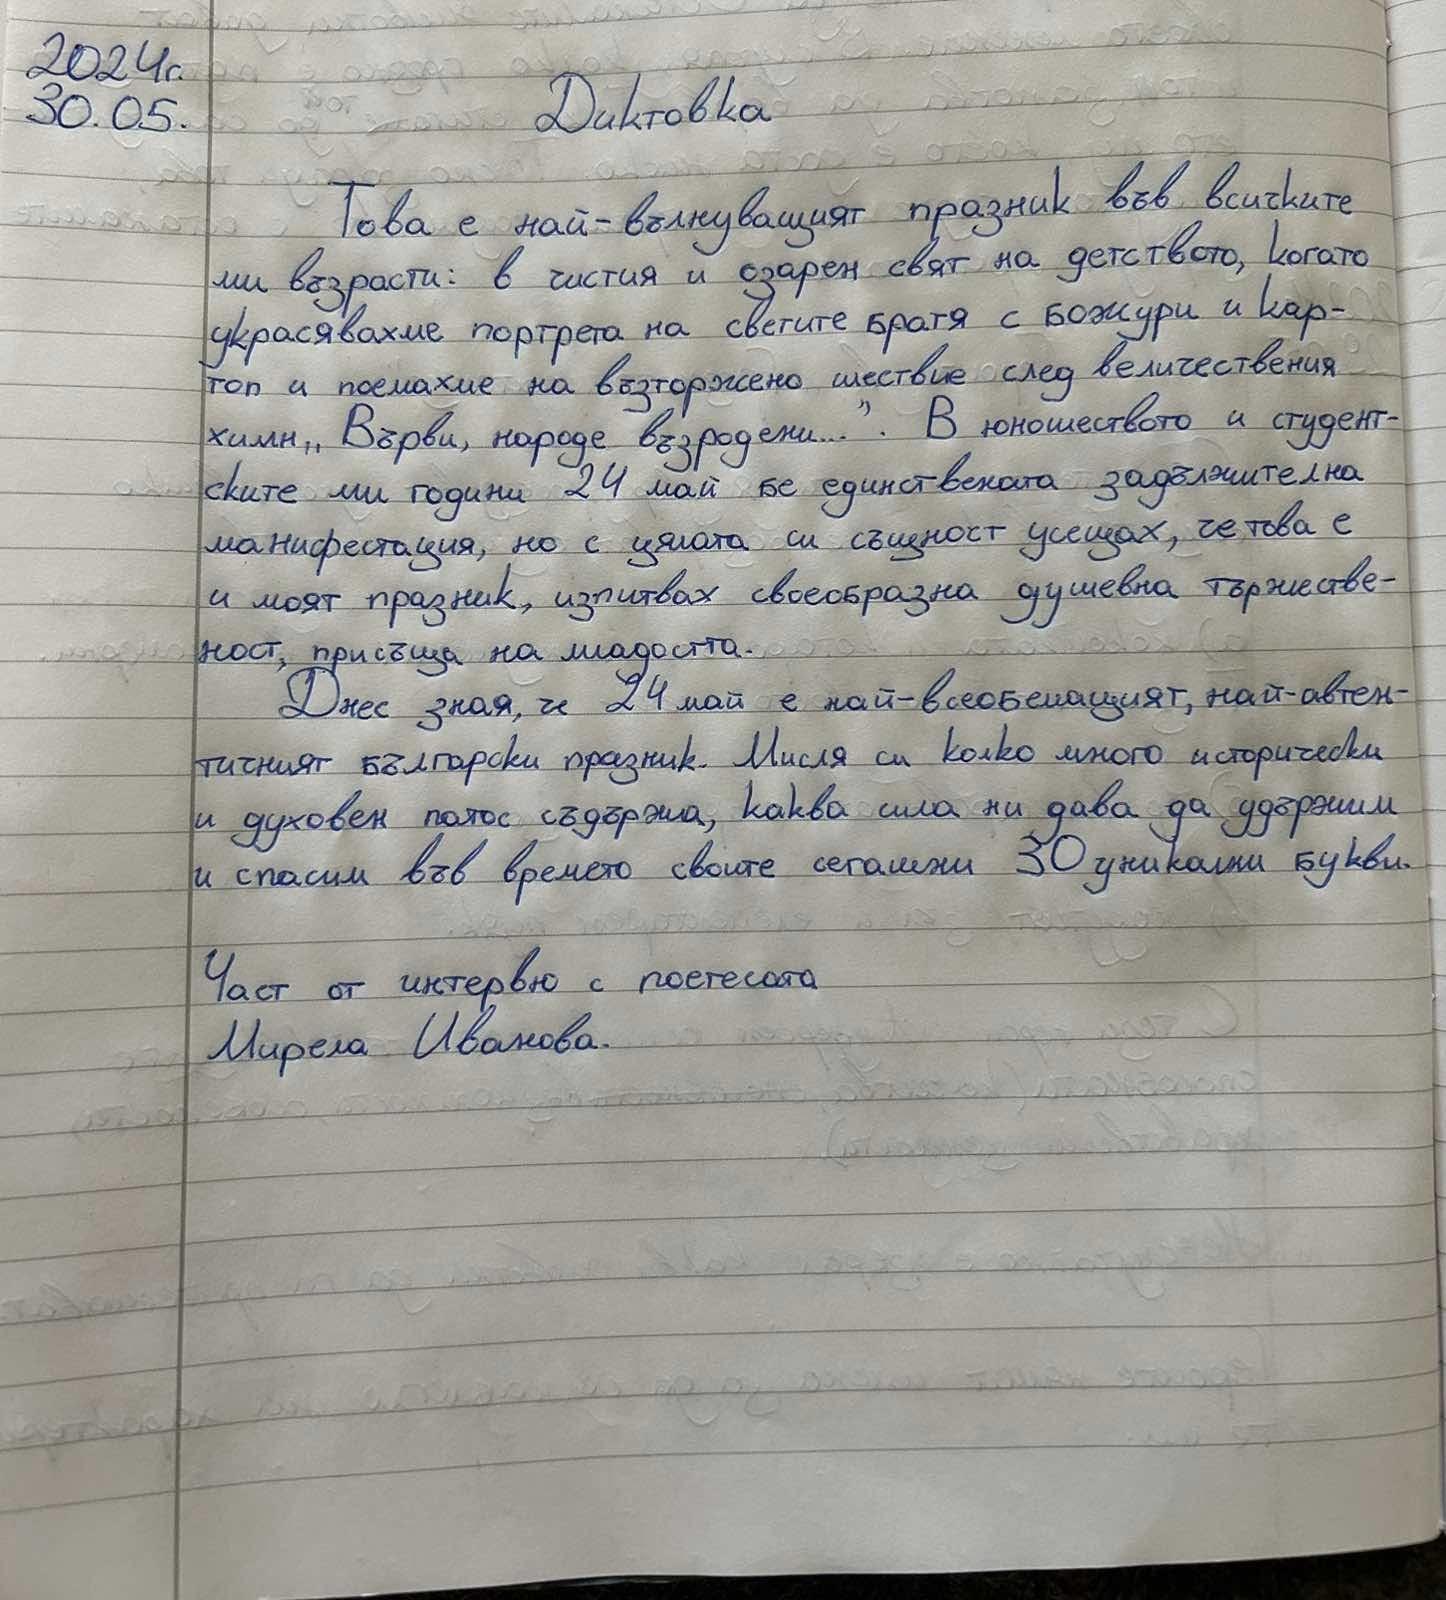 2024г.
30.05.
Диктовка
Това е най-вълнуващият празник във всичките
ми възрасти: в чистия и озарен свят на детството, когато
украсявахме портрета на светите братя с божури и кар-
топ и поемахме на възторжено шествие след величествения
химн „Върви, народе възродени...". В юношеството и студент-
ските ми години 24 май бе единствената задължителна
манифестация, но с цялата си същност усещах, че това е
и моят празник, изпитвах своеобразна душевна тържестве-
ност, присъща на младостта.
Днес зная, че 24 май е най-всеобемащият, най-автен-
тичният български празник. Мисля си колко много исторически
и духовен патос съдържа, каква сила ни дава да удържим
и спасим във времето своите сегашни 30 уникални букви.
Част от интервю с поетесата
Мирела Иванова.